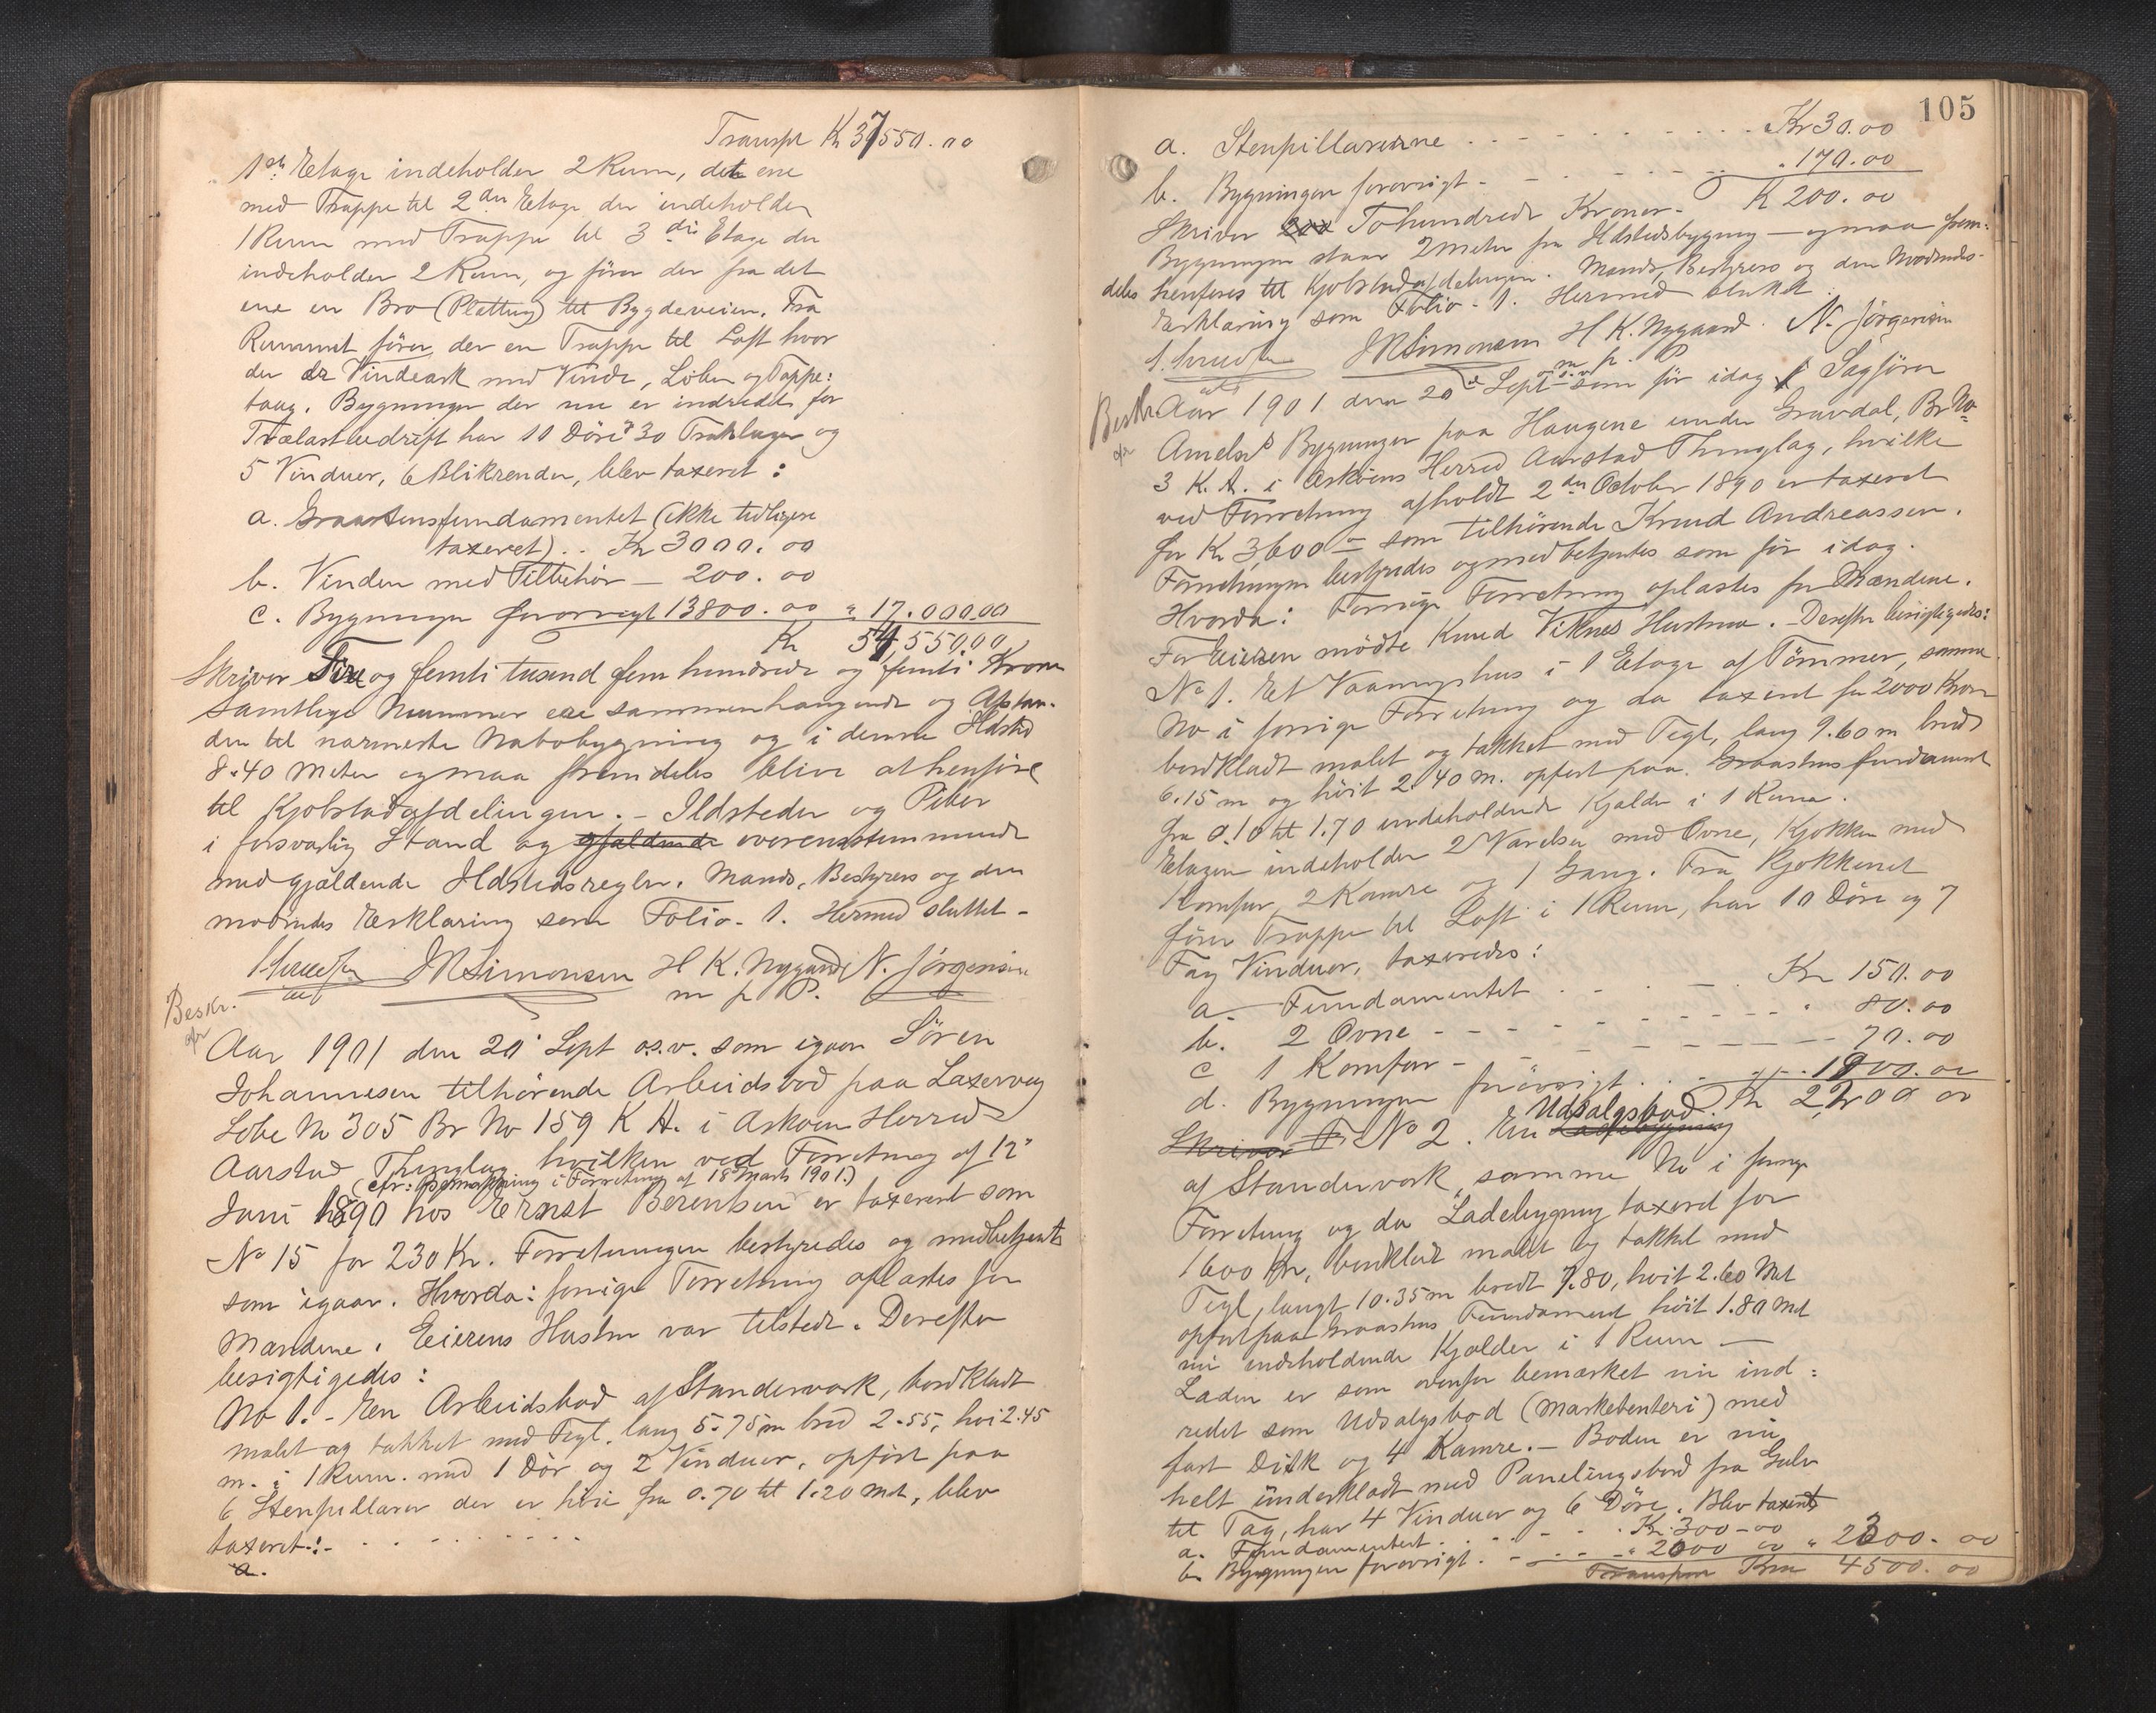 Transpt Kr 37550.00
1ste Etage indeholder 2 Rum, det ene
med Trappe til 2den Etage der indeholder
1 Rum med Trappe til 3die Etage der
indeholder 2 Rum, og förer der fra det
ene en Bro (Platting) til Bygdeveien. Fra
Rummet förer der en Trappe til Loft hvor
der er Vindeark med Vinde, Löber og Toppe:
taug. Bygningen der nu er indredet for
Trælastbedrift har 10 Döre, 30 Træluger og
5 Vinduer, 6 Blikrender, blev taxeret:
a. Graastensfundamentet (ikke tidligere
taxeret) .. Kr 3000.00
b. Vinden med Tilbehör — 200.00
c. Bygningen forövrigt 13800.00 " 17.000.00
Kr 54,550.00
Skriver Fire og femti tusend fem hundrede og femti Kroner
Samtlige Nummer ere sammenhængende og Afstan-
den til nærmeste Nabobygning og i denne Ildsted
8.40 Meter og maa fremdeles blive at henföre
til Kjöbstadafdelingen. - Ildsteder og Piber
i forsvarlig Stand og gjældende overensstemmende
med gjældende Ildstedsregler. Mænds, Bestyrers og den
mödendes Erklæring som Folio - 1. Hermed sluttet -
JR Simonsen H K. Nygaard N. Jörgensen
m p P.
Beskr.
Aar 1901 den 20' Sept o.s.v. som igaar Sören
Johannesen tilhörende Arbeidsbod paa Laxevaag
Löbe No 305 Br No 159 K A. i Askøen Herred
Aarstad Thinglag hvilken ved Forretning af 12'
(cfr: Bemærkning i Forretning af 18 Marts 1901)
Juni 1890 hos Ernst Berentsen er taxeret som
No 15 for 230 Kr. Forretningen bestyredes og medbetjentes
som igaar. Hvorda: forrige Forretning oplæstes for
Mændene. Eierens Hustru var tilstede. Derefter
besigtigedes:
No 1. - En Arbeidsbod af Standerværk, bordklædt
malet og tækket med Tegl, lang 5.75 m bred 2.55, höi 2.45
m. i 1 Rum med 1 Dör og 2 Vinduer, opfört paa
6 Stenpillarer der er höie fra 0.70 til 1.20 Met, blev
taxeret:- . . . . . . .
a.
105
a. Stenpillarerne . . . . . . Kr 30.00
b. Bygningen forövrigt . . . . . 170.00
K 200.00
Skriver 200 Tohundrede Kroner -
Bygningen staar 2 meter fra Ildstedsbygning — og maa frem:
deles henföres til Kjöbstadafdelingen. Mænds, Bestyrers og den Mödendes-
Erklæring som Folio - 1. Hermed sluttet.
JR Simonsen H K. Nygaard N. Jörgensen
m p. P
Beskr
Aar 1901 den 20de Sept o.s.v som för idag Sagförer
Amelns Bygninger paa Haugene under Gravdal, Br No
3 K. A. i Askøens Herred Aarstad Thinglag, hvilke
ved Forretning afholdt 2den October 1890 er taxeret
for Kr 3,600 - som tilhörende Knud Andreassen.
Forretningen bestyredes og medbetjentes som för idag.
Hvorda: Forrige Forretning oplæstes for Mændene.
For Eieren mödte Knud Viknes Hustru. - Derefter besigtigedes:
No 1. Et Vaaningshus i 1 Etage af Tömmer, samme
No i forrige Forretning og da taxeret for 2000 Kroner
bordklædt malet og tækket med Tegl, lang 9.60 m bred
6.15 m og höit 2.40 m. opfört paa Graastens fundament
fra 0.10 til 1.70 indeholdende Kjælder i 1 Rum.
Etagen indeholder 2 Værelser med Ovne, Kjökken med
1 Komfur, 2 Kamre og 1 Gang. Fra Kjökkenet
förer Trappe til Loft i 1 Rum, har 10 Döre og 7
Fag Vinduer, taxeredes:
a. Fundamentet . . . . Kr 150.00
b. 2 Ovne - - - - - - - - 80.00
c 1 Komfur - - - - - - 70.00
d. Bygningen forövrigt . . . . 1900.00
Kr 2200 00
Skriver T No 2. En Ladebygning Udsalgsbod.
af Standerværk, samme No i forrige
Forretning og da Ladebygning taxeret for
1600 Kr, bordklædt malet og tækket med
Tegl, langt 10.35 m bredt 7.80, höit 2.60 Met
opfört paa Graastens Fundament höit 1.80 Met
nu indeholdende Kjælder i 1 Rum —
Laden er som ovenfor bemærket nu ind:
redet som Udsalgsbod (Marketenteri) med
fast Disk og 4 Kamre. - Boden er nu
helt underklædt med Panelingsbord fra Gulv
til Tag, har 4 Vinduer og 6 Döre. Blev taxeret
a. Fundamentet . . . . . Kr. 300-00
b. Bygningen forövrigt . - . - " 2000 00 " 2300.00
Transport Kroner 4500.00